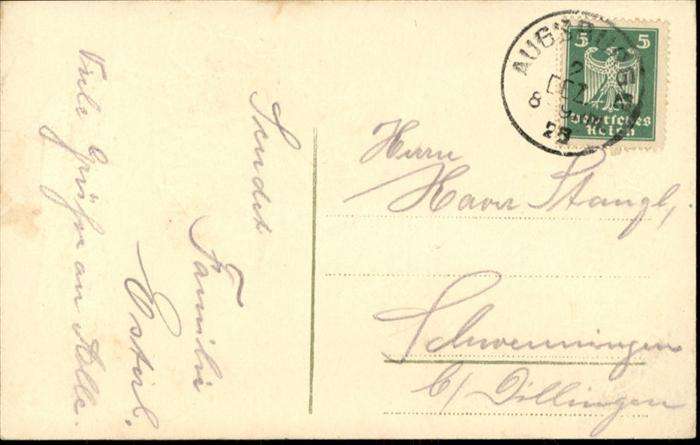 Sendet
Familie
Esterl.
Viele Grüße an Alle.
Herrn
Xaver Stangl,
Schwenningen
b/ Dillingen
AUGSBURG
2
DEZ
8 9
25
5 5
Deutsches
Reich